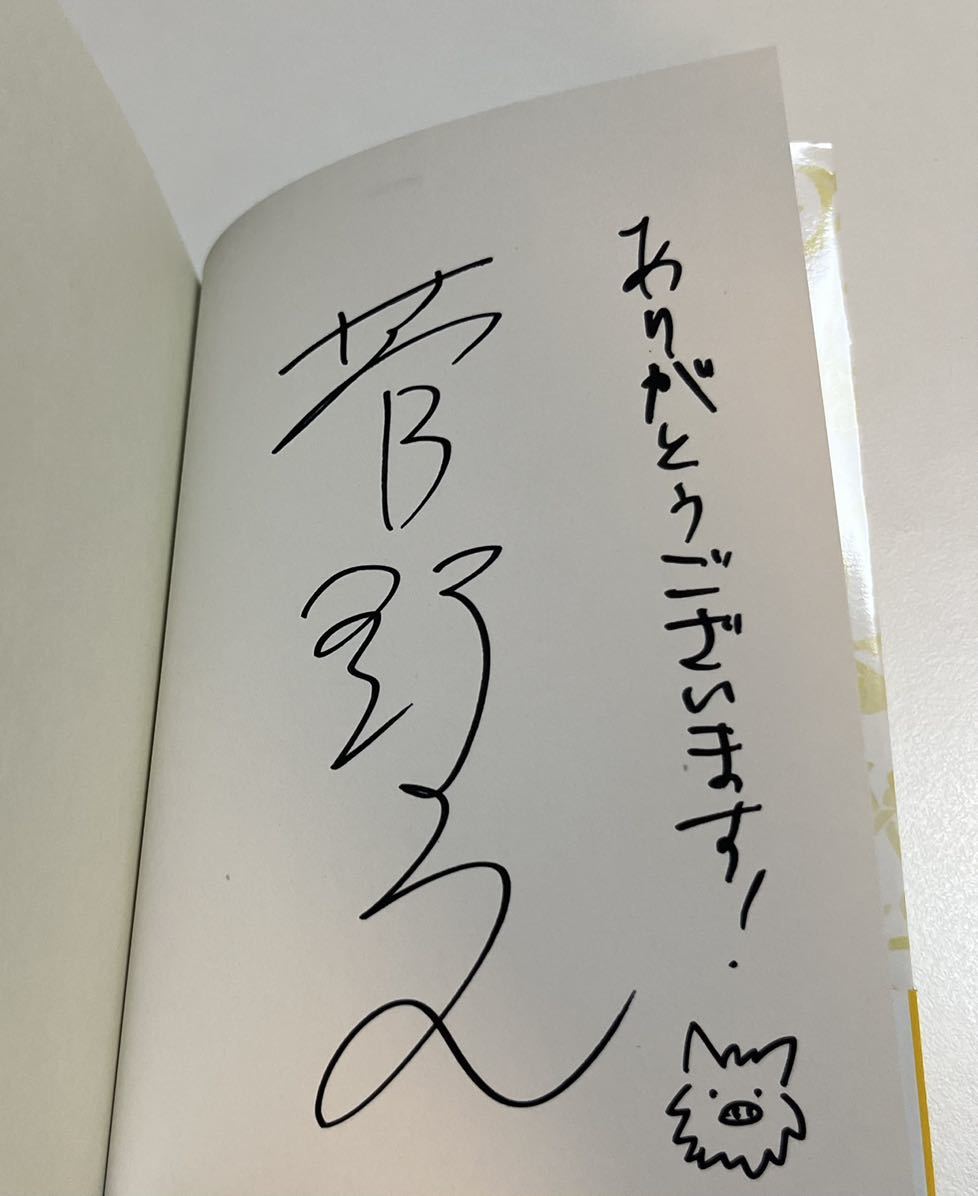 ありがとうございます!
菅野文